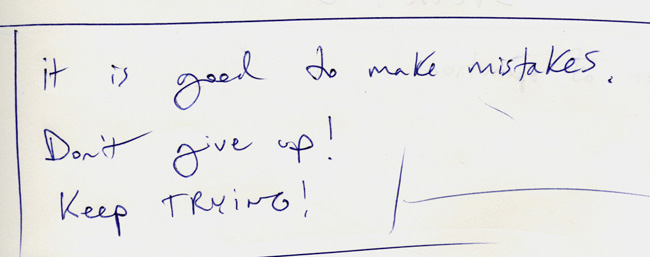 it is good to make mistakes.
Don't give up!
Keep TRYING!